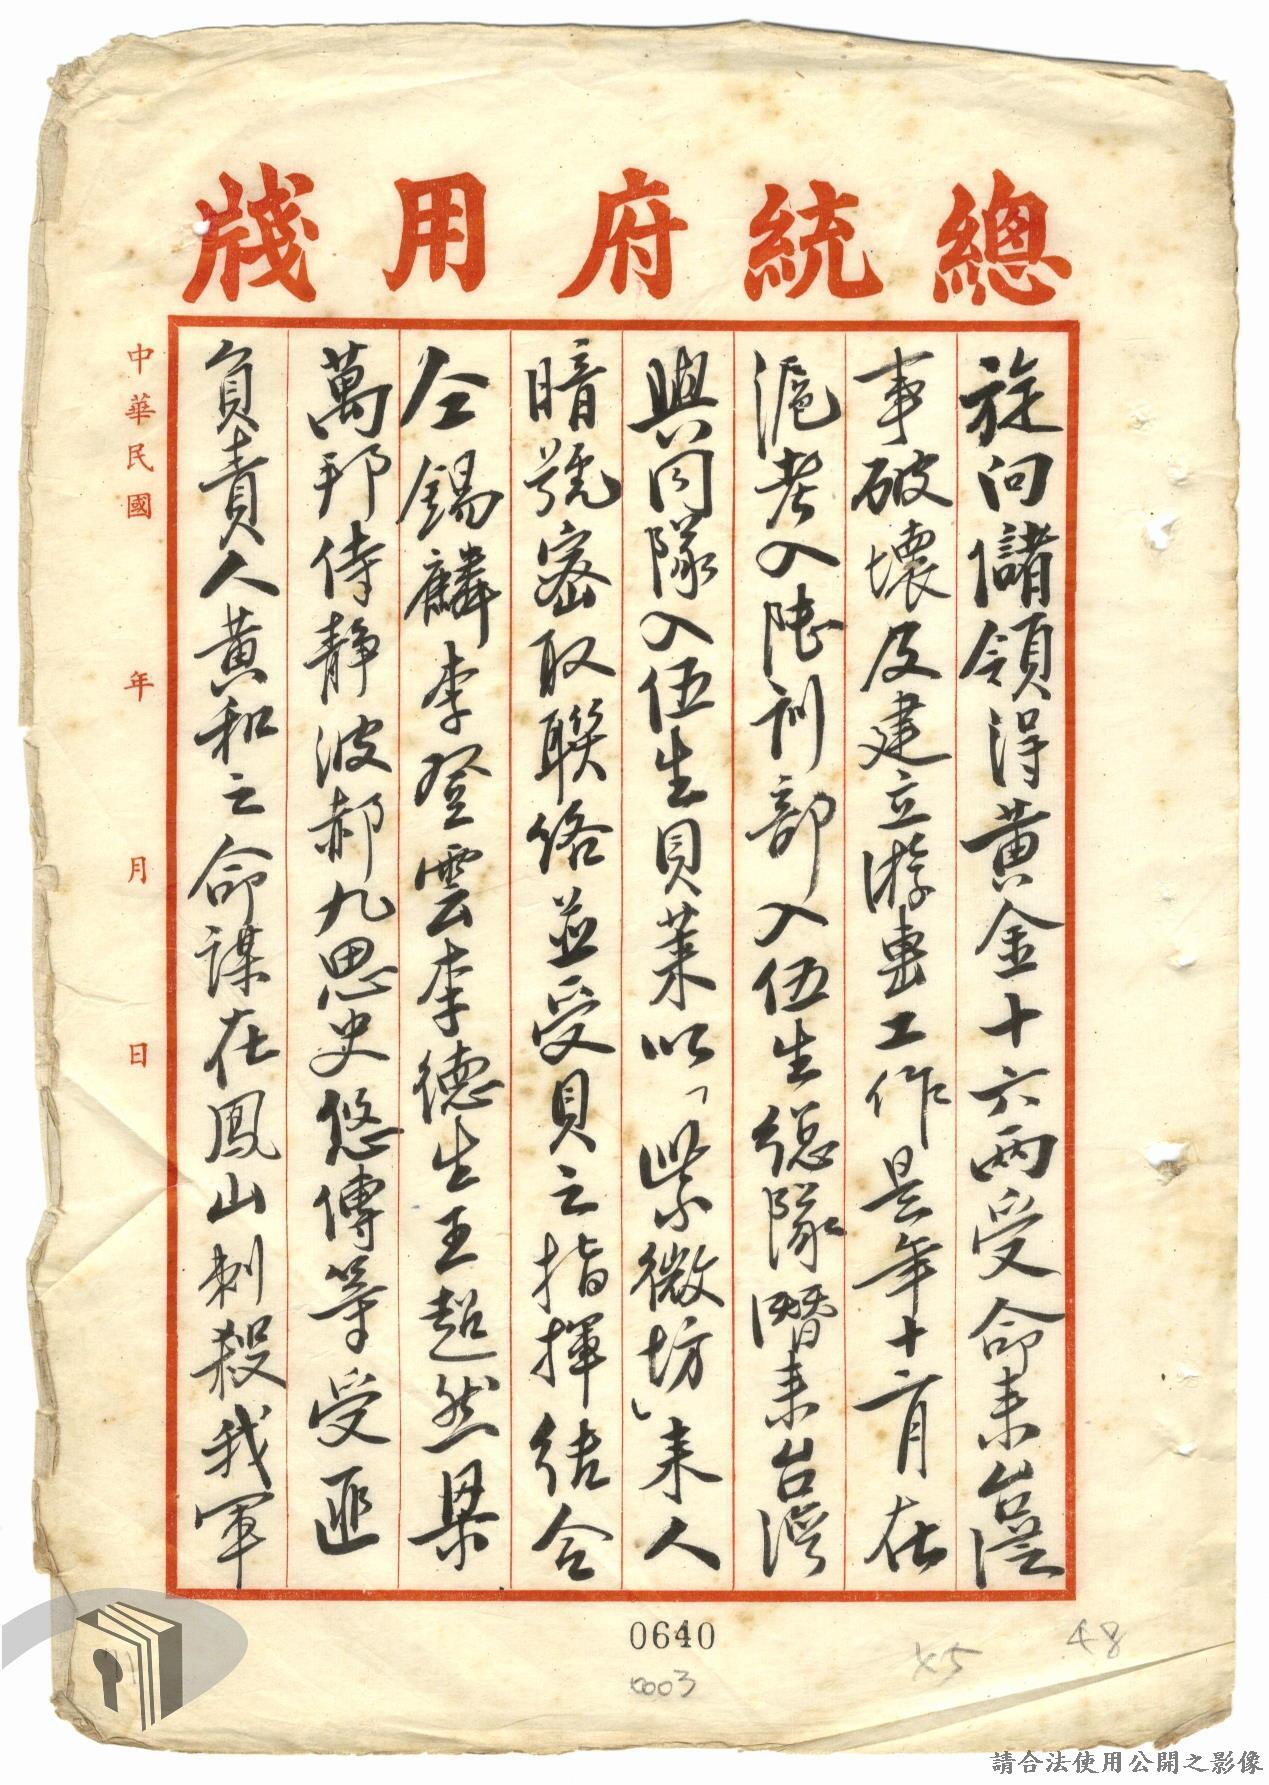 總統府用牋
旋向儲領得黃金十六两受命來台從
事破壞及建立游击工作是年十二月在
滬考入陸訓部入伍生總隊潛來台灣
與同隊入伍生貝萊以「紫微坊」來人
暗號密取聯络並受貝之指揮结合
仝錫麟李登雲李德生王超然梁
萬邦侍静波郝九思史悠傳等受匪
負責人黃和之命謀在鳳山刺殺我軍
中華民國 年 月 日
0640
0003
45
48
請合法使用公開之影像